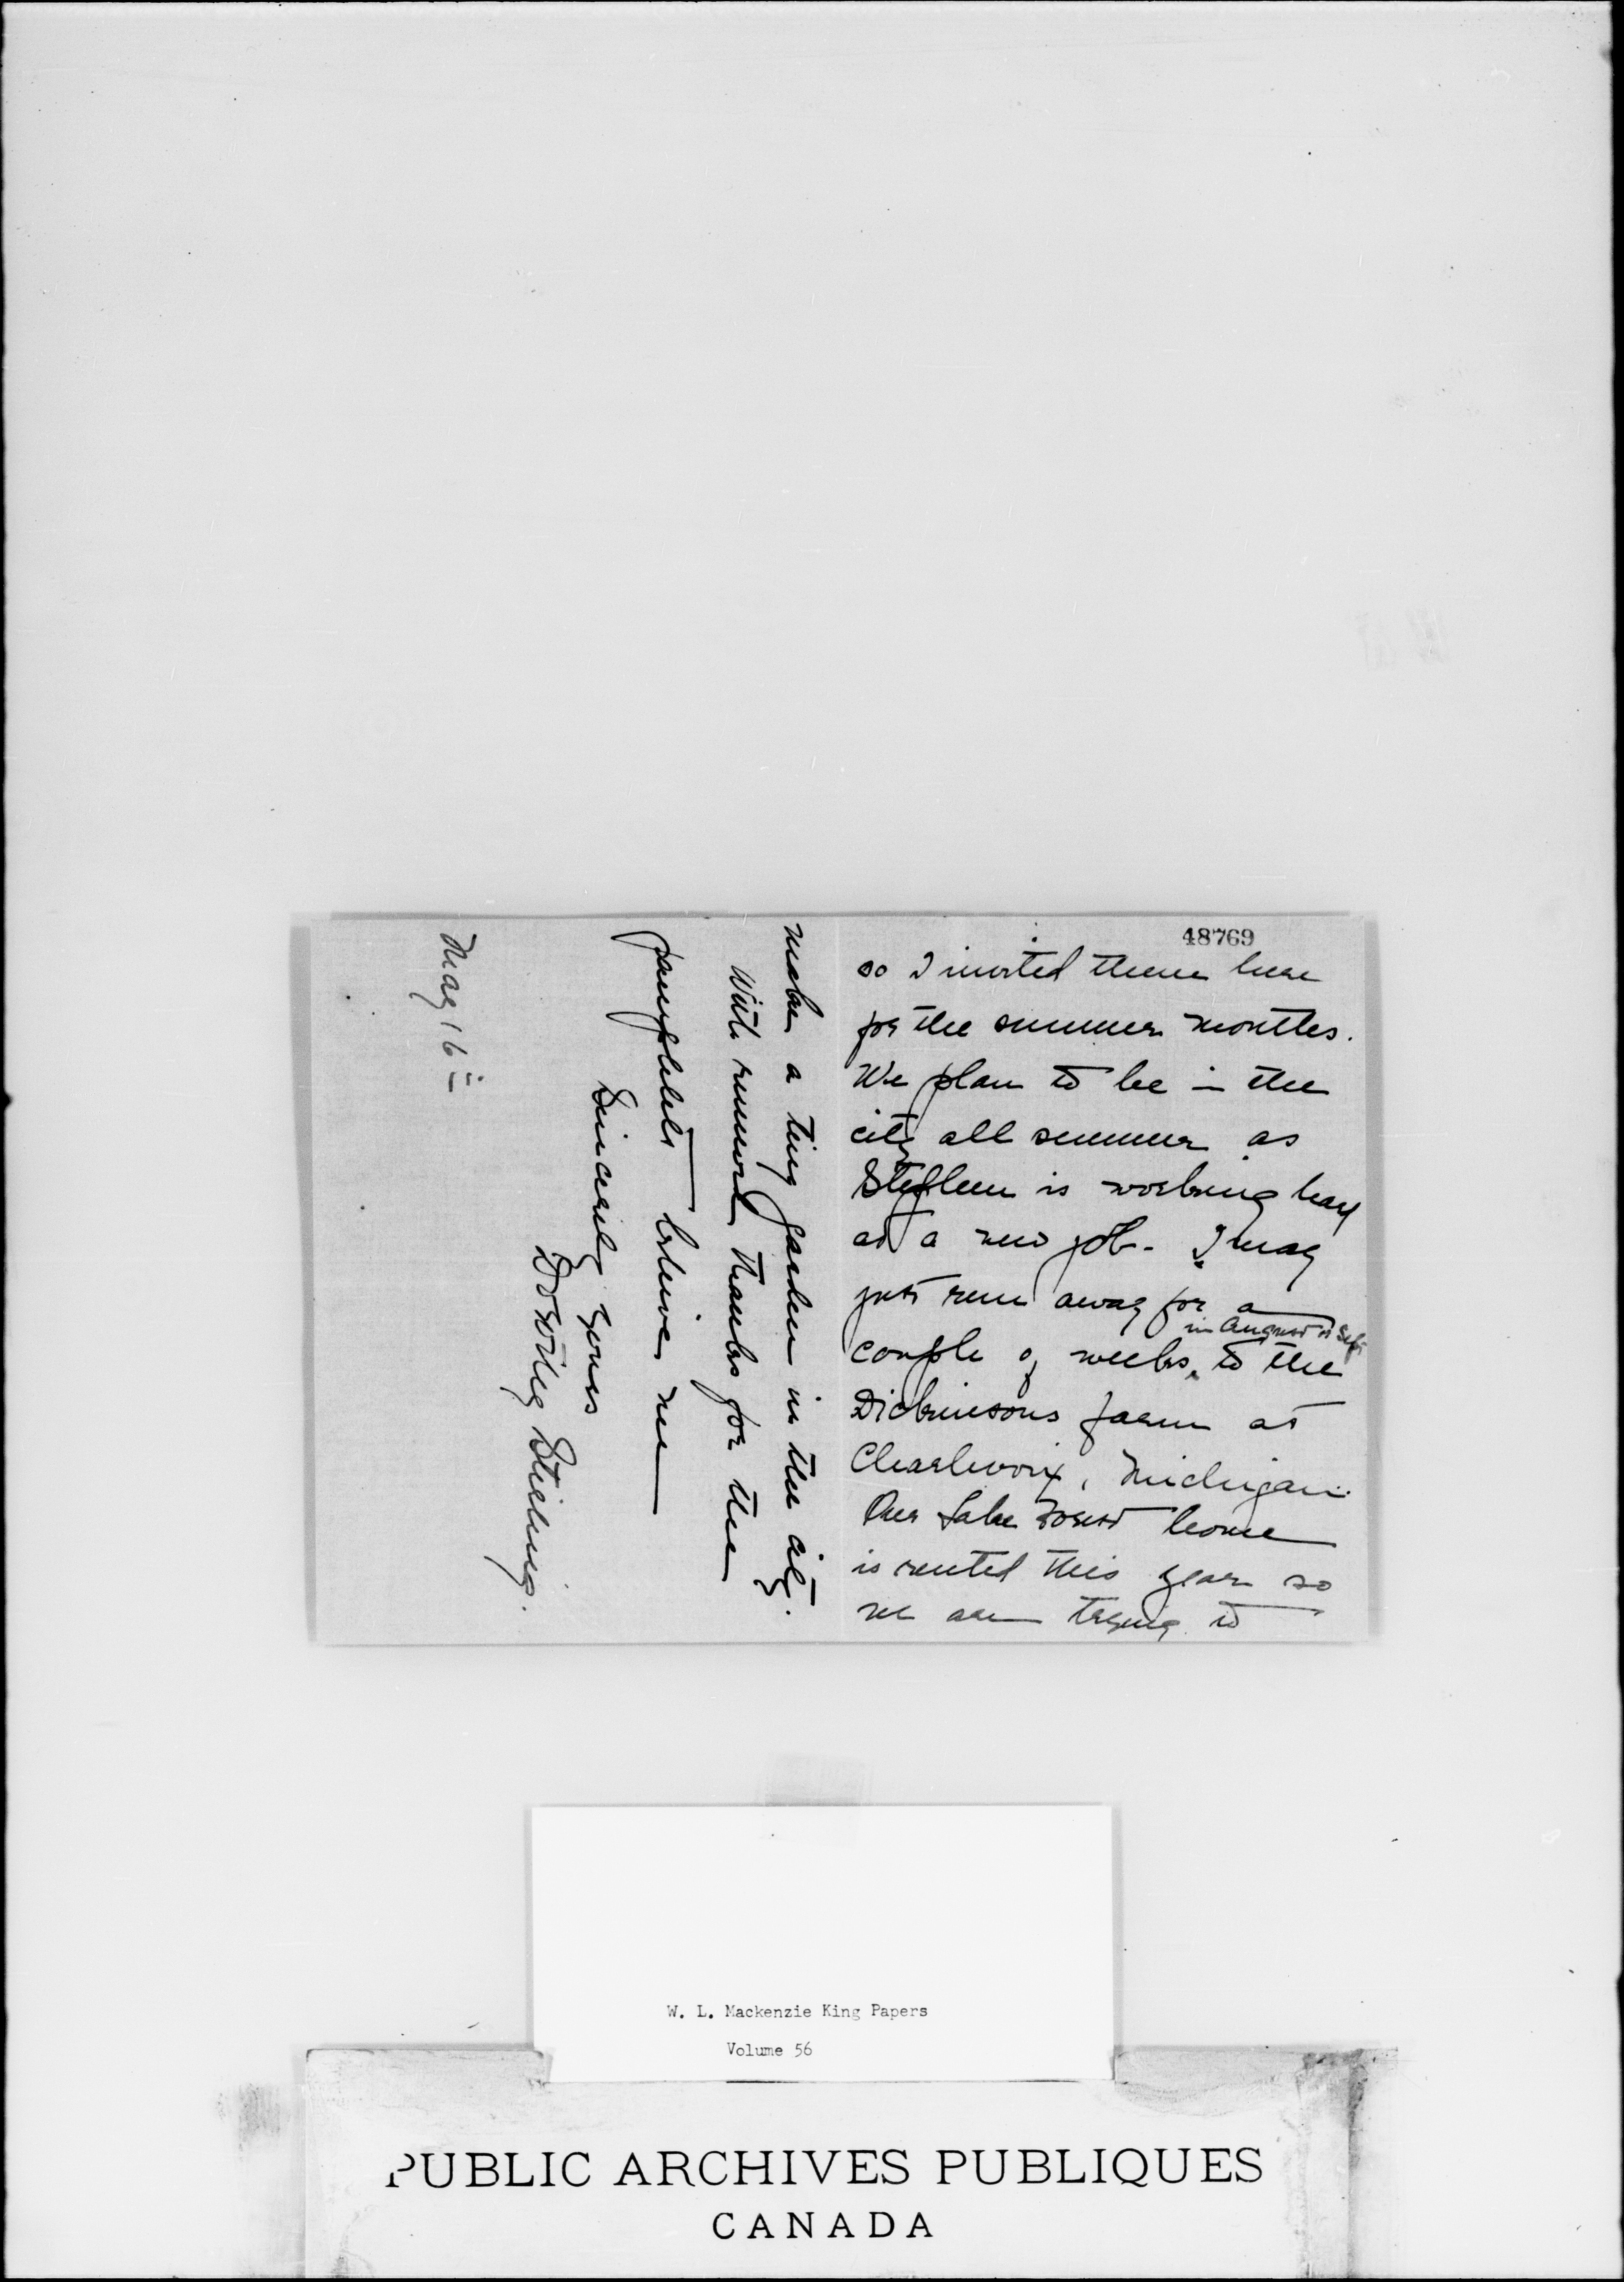 48769
so I invited them here
for the summer months.
We plan to be in the
city all summer as
Stephen is working hard
at a new job. I may
just run away for a
couple of weeks, in August or Sept to the
Dickinsons farm at
Charlevoix, Michigan.
Our Lake Forest home
is rented this year so
we are trying to
make a tiny garden in the city.
With renewed thanks for the
pamphlets believe me
Sincerely yours
Dorothy Sterling.
May 16th
W. L. Mackenzie King Papers
Volume 56
PUBLIC ARCHIVES PUBLIQUES
CANADA